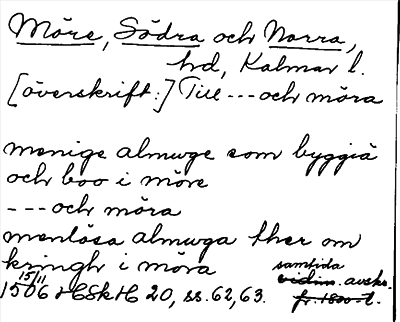 Möre, Södra och Norra,
hd, Kalmar l.
[överskrift:] Till --- och möra
menige almwge som byggiä
och boo i möre
--- och möra
menlösa almwga ther om
kringh i möra samtida
15/11 vidim. avskr.
1506 HSkH 20, ss. 62, 63. fr. 1800-t.